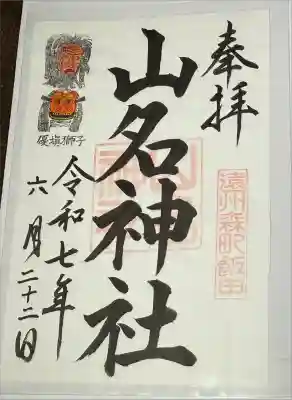 奉拝
遠州森町飯田
山名神社
優填獅子
令和七年
六月二十二日